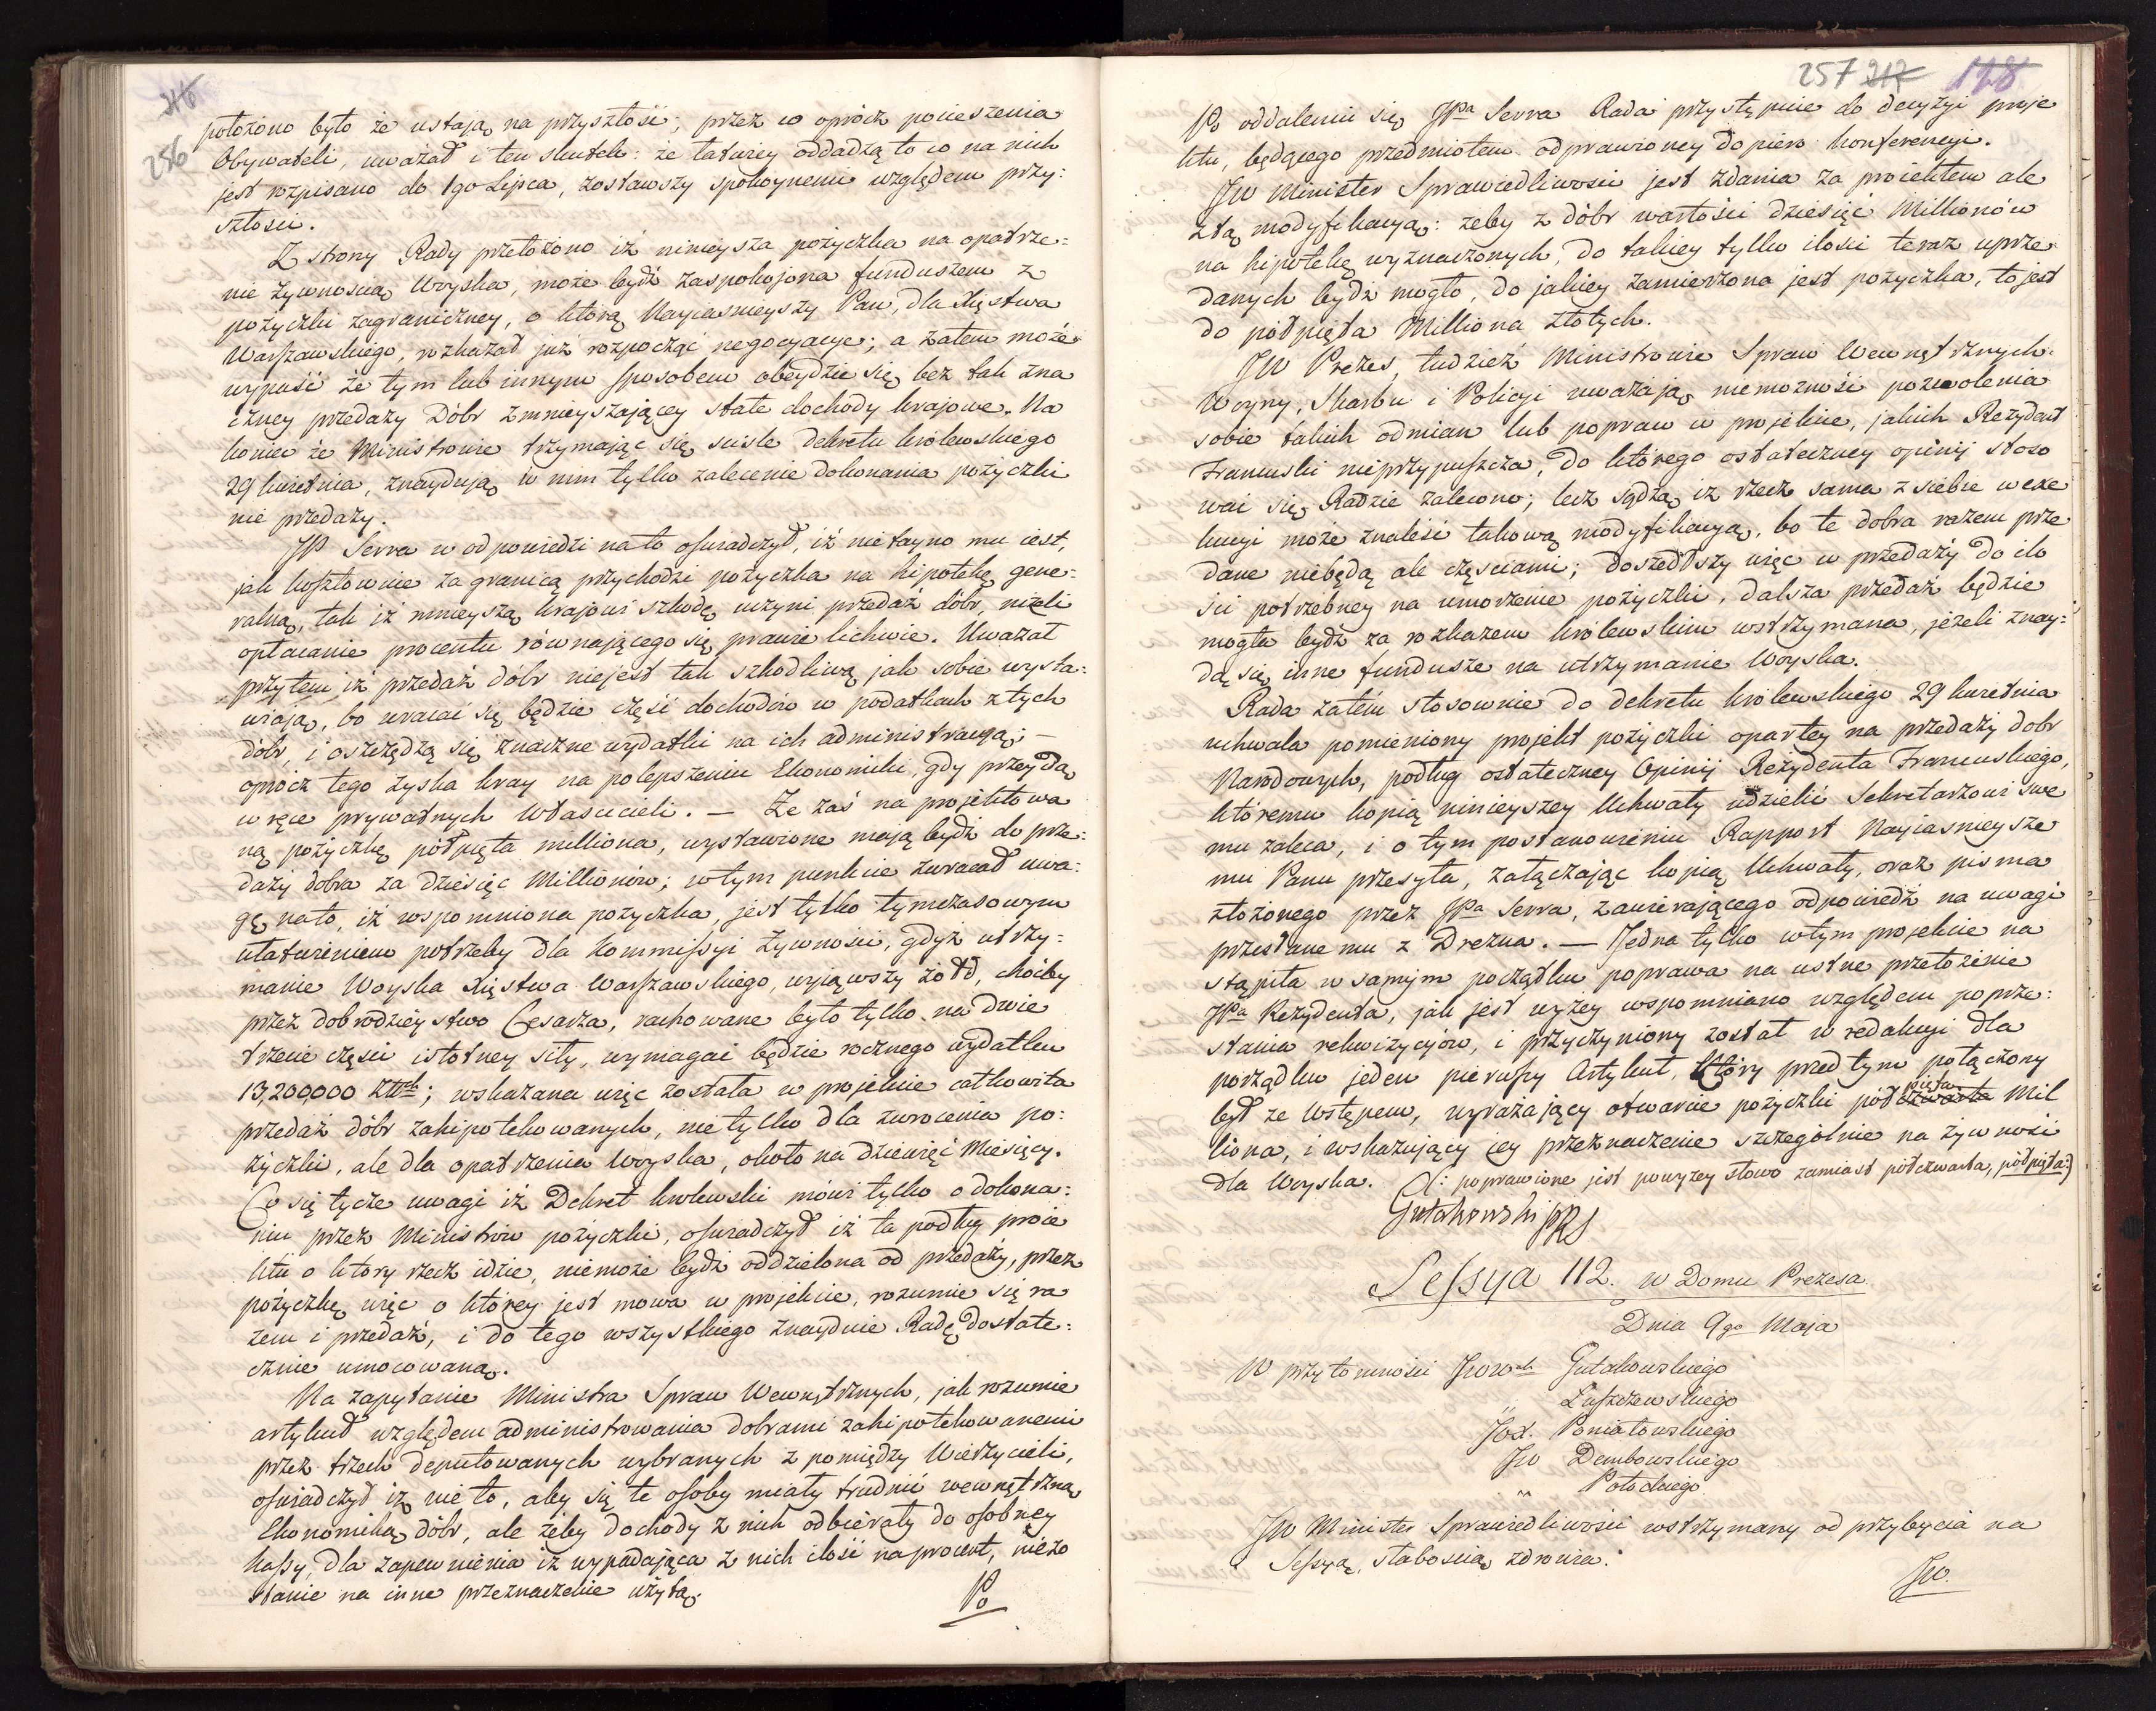 216
256
położono było że ustają na przyszłość; przez co oprócz pocieszenia
Obywateli, uważał i ten skutek: że łatwiey oddadzą to co na nich
jest rozpisano do 1go Lipca, zostawszy spokoynemi względem przy:
szłości.
Z strony Rady przełożono iż ninieysza pożyczka na opatrze:
nie żywnością Woyska, może bydź zaspokojona funduszem z
pożyczki zagraniczney, o którą Nayiasnieyszy Pan, dla Xięstwa
Warszawskiego, rozkazał już rozpocząć negocyacye; a zatem może
wypaść że tym lub innym sposobem obeydzie się bez tak zna
czney przedaży Dóbr zmnieyszającey stałe dochody krajowe. Na
koniec że Ministrowie trzymając się sciśle dekretu królewskiego
29 kwietnia, znaydują w nim tylko zalecenie dokonania pożyczki
nie przedaży.
JP Serra w odpowiedzi na to oswiadczył, iż nietayno mu iest,
jak kosztownie za granicą przychodzi pożyczka na hipotekę gene:
ralną, tak iż mnieyszą krajowi szkodę uczyni przedaż dóbr, niżeli
opłacanie procentu równającego się prawie lichwie. Uważał
przytem iż przedaż dóbr niejest tak szkodliwą jak sobie wysta:
wiają, bo wracać się będzie część dochodów w podatkach z tych
dóbr, i oszczędzą się znaczne wydatki na ich administracyą; —
oprócz tego zyska kray na polepszeniu Ekonomiki, gdy przeydą
w ręce prywatnych Właścicieli. — Że zaś na projektowa
ną pożyczkę półpięta milliona, wystawione mają bydź do prze:
daży dobra za dziesięc Millionów; w tym punkcie zwracał uwa:
gę na to, iż wspomniona pożyczka, jest tylko tymczasowym
ułatwieniem potrzeby dla Kommissyi żywności, gdyż utrzy:
manie Woyska Xięstwa Warszawskiego, wyiąwszy żołd, choćby
przez dobrodzieystwo Cesarza, rachowane było tylko na dwie
trzecie części istotney siły, wymagać będzie rocznego wydatku
13,200,000 Złłch; wskazana więc została w projekcie całkowita
przedaż dóbr zahipotekowanych, nie tylko dla zwrócenia po:
życzki, ale dla opatrzenia Woyska, około na dziewięć Miesięcy.
Co się tycze uwagi iż Dekret krolewski mówi tylko o dokona:
niu przez Ministrów pożyczki, oswiadczył iż ta podług proie
ktu o który rzecz idzie, niemoże bydź oddzielona od przedaży, przez
pożyczkę więc o którey jest mowa w projekcie, rozumie się ra
zem i przedaż, i do tego wszystkiego znayduie Radę dostate:
cznie umocowaną.
Na zapytanie Ministra Spraw Wewnętrznych, jak rozumie
artykuł względem administrowania dobrami zahipotekowanemi
przez trzech deputowanych wybranych z pomiędzy Wierzycieli,
oswiadczył iż nie to, aby się te osoby miały trudnić wewnętrzną
Ekonomiką dóbr, ale żeby dochody z nich odbierały do osobney
kassy, dla zapewnienia iż wypadająca z nich ilość na procent, niezo
stanie na inne przeznaczenie użytą.
Po
257 212 128
Po oddaleniu się JPa Serra Rada przystępuie do decyzyi proje
ktu, będącego przedmiotem odprawioney dopiero konferencyi.
JW Minister Sprawiedliwości jest zdania za proiektem ale
z tą modyfikacyą: żeby z dóbr wartości dziesięć Millionów
na hipotekę wyznaczonych, do takiey tylko ilości teraz uprze
danych bydź mogło, do jakiey zamierzona jest pożyczka, to jest
do półpięta Milliona złotych.
JW Prezes, tudzież Ministrowie Spraw Wewnętrznych
Woyny, Skarbu i Policyi uważają niemożność pozwolenia
sobie takich odmian lub popraw w projekcie, jakich Rezydent
Francuski nieprzypuszcza, do którego ostateczney opinij stoso
wać się Radzie zalecono; lecz sądzą iż rzecz sama z siebie w exe
kucyi może znaleść takową modyfikacyą, bo te dobra razem prze
dane niebędą ale częściami; doszedłszy więc w przedaży do ilo
ści potrzebney na umorzenie pożyczki, dalsza przedaż będzie
mogła bydź za rozkazem królewskim wstrzymana, jeżeli znay:
dą się inne fundusze na utrzymanie Woyska.
Rada zatém stosownie do dekretu królewskiego 29 kwietnia
uchwala pomieniony projekt pożyczki opartey na przedaży dobr
Narodowych, podług ostateczney Opinij Rezydenta Francuskiego,
któremu kopią ninieyszey Uchwały udzielić Sekretarzowi swe
mu zaleca, i o tym postanowieniu Rapport Nayiasnieysze
mu Panu przesyła, załączając kopią Uchwały, oraz pisma
złożonego przez JPa Serra, zawierającego odpowiedź na uwagi
przesłane mu z Drezna. — Jedna tylko w tym projekcie na
stąpiła w samym początku poprawa na ustne przełożenie
JPa Rezydenta, jak jest wyżey wspomniano względem poprze:
stania rekwizycyów, i przyczyniony został w redakcyi dla
porządku jeden pierwszy Artykuł, który przed tym połączony
był ze Wstępem, wyrażający otwarcie pożyczki pół czwarta pięta Mil
liona, i wskazujący iey przeznaczenie szczególnie na żywność
dla Woyska. (: poprawione jest powyżey słowo zamiast półczwarta, półpięta:)
Gutakowski PRS
Sessya 112. w Domu Prezesa
Dnia 9go Maja
W przytomności JWWch Gutakowskiego
" Łuszczewskiego
JOX. Poniatowskiego
JW Dembowskiego
" Potockiego
JW Minister Sprawiedliwości wstrzymany od przybycia na
Sessyą, słabością zdrowia.
JW.